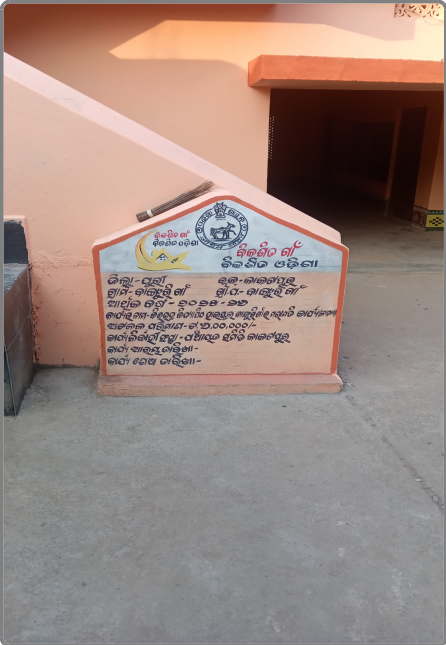 ବିକଶିତ ଗାଁ
ବିକଶିତ ଓଡ଼ିଶା
ବିକଶିତ ଗାଁ
ବିକଶିତ ଓଡ଼ିଶା
ଜିଲ୍ଲା-ପୁରୀ ବ୍ଲକ-କାକଟପୁର
ଗ୍ରାମ- ଗାଁ ଗ୍ରା.ପ- ଗାଁ
ଆର୍ଥିକ ବର୍ଷ - ୨୦୨୫-୨୬
କାର୍ଯ୍ୟର ନାମ-
ଅଟକଳ ପରିମାଣ-ଟ ୨,୦୦,୦୦୦/-
କାର୍ଯ୍ୟକାରୀ ସଂସ୍ଥା - ପଞ୍ଚାୟତ ସମିତି କାକଟପୁର
କାର୍ଯ୍ୟ ଆରମ୍ଭ ତାରିଖ-
କାର୍ଯ୍ୟ ଶେଷ ତାରିଖ-